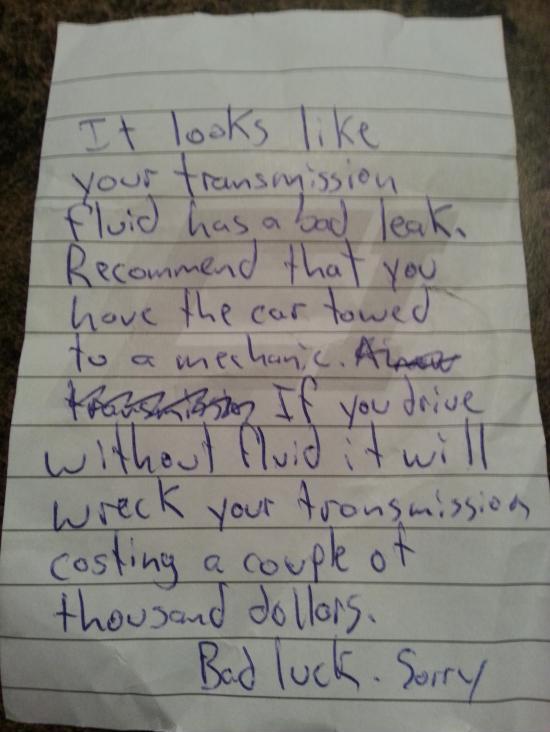 It looks like
your transmission
fluid has a bad leak.
Recommend that you
have the car towed
to a mechanic.
If you drive
without fluid it will
wreck your transmission
costing a couple of
thousand dollars.
Bad luck. Sorry